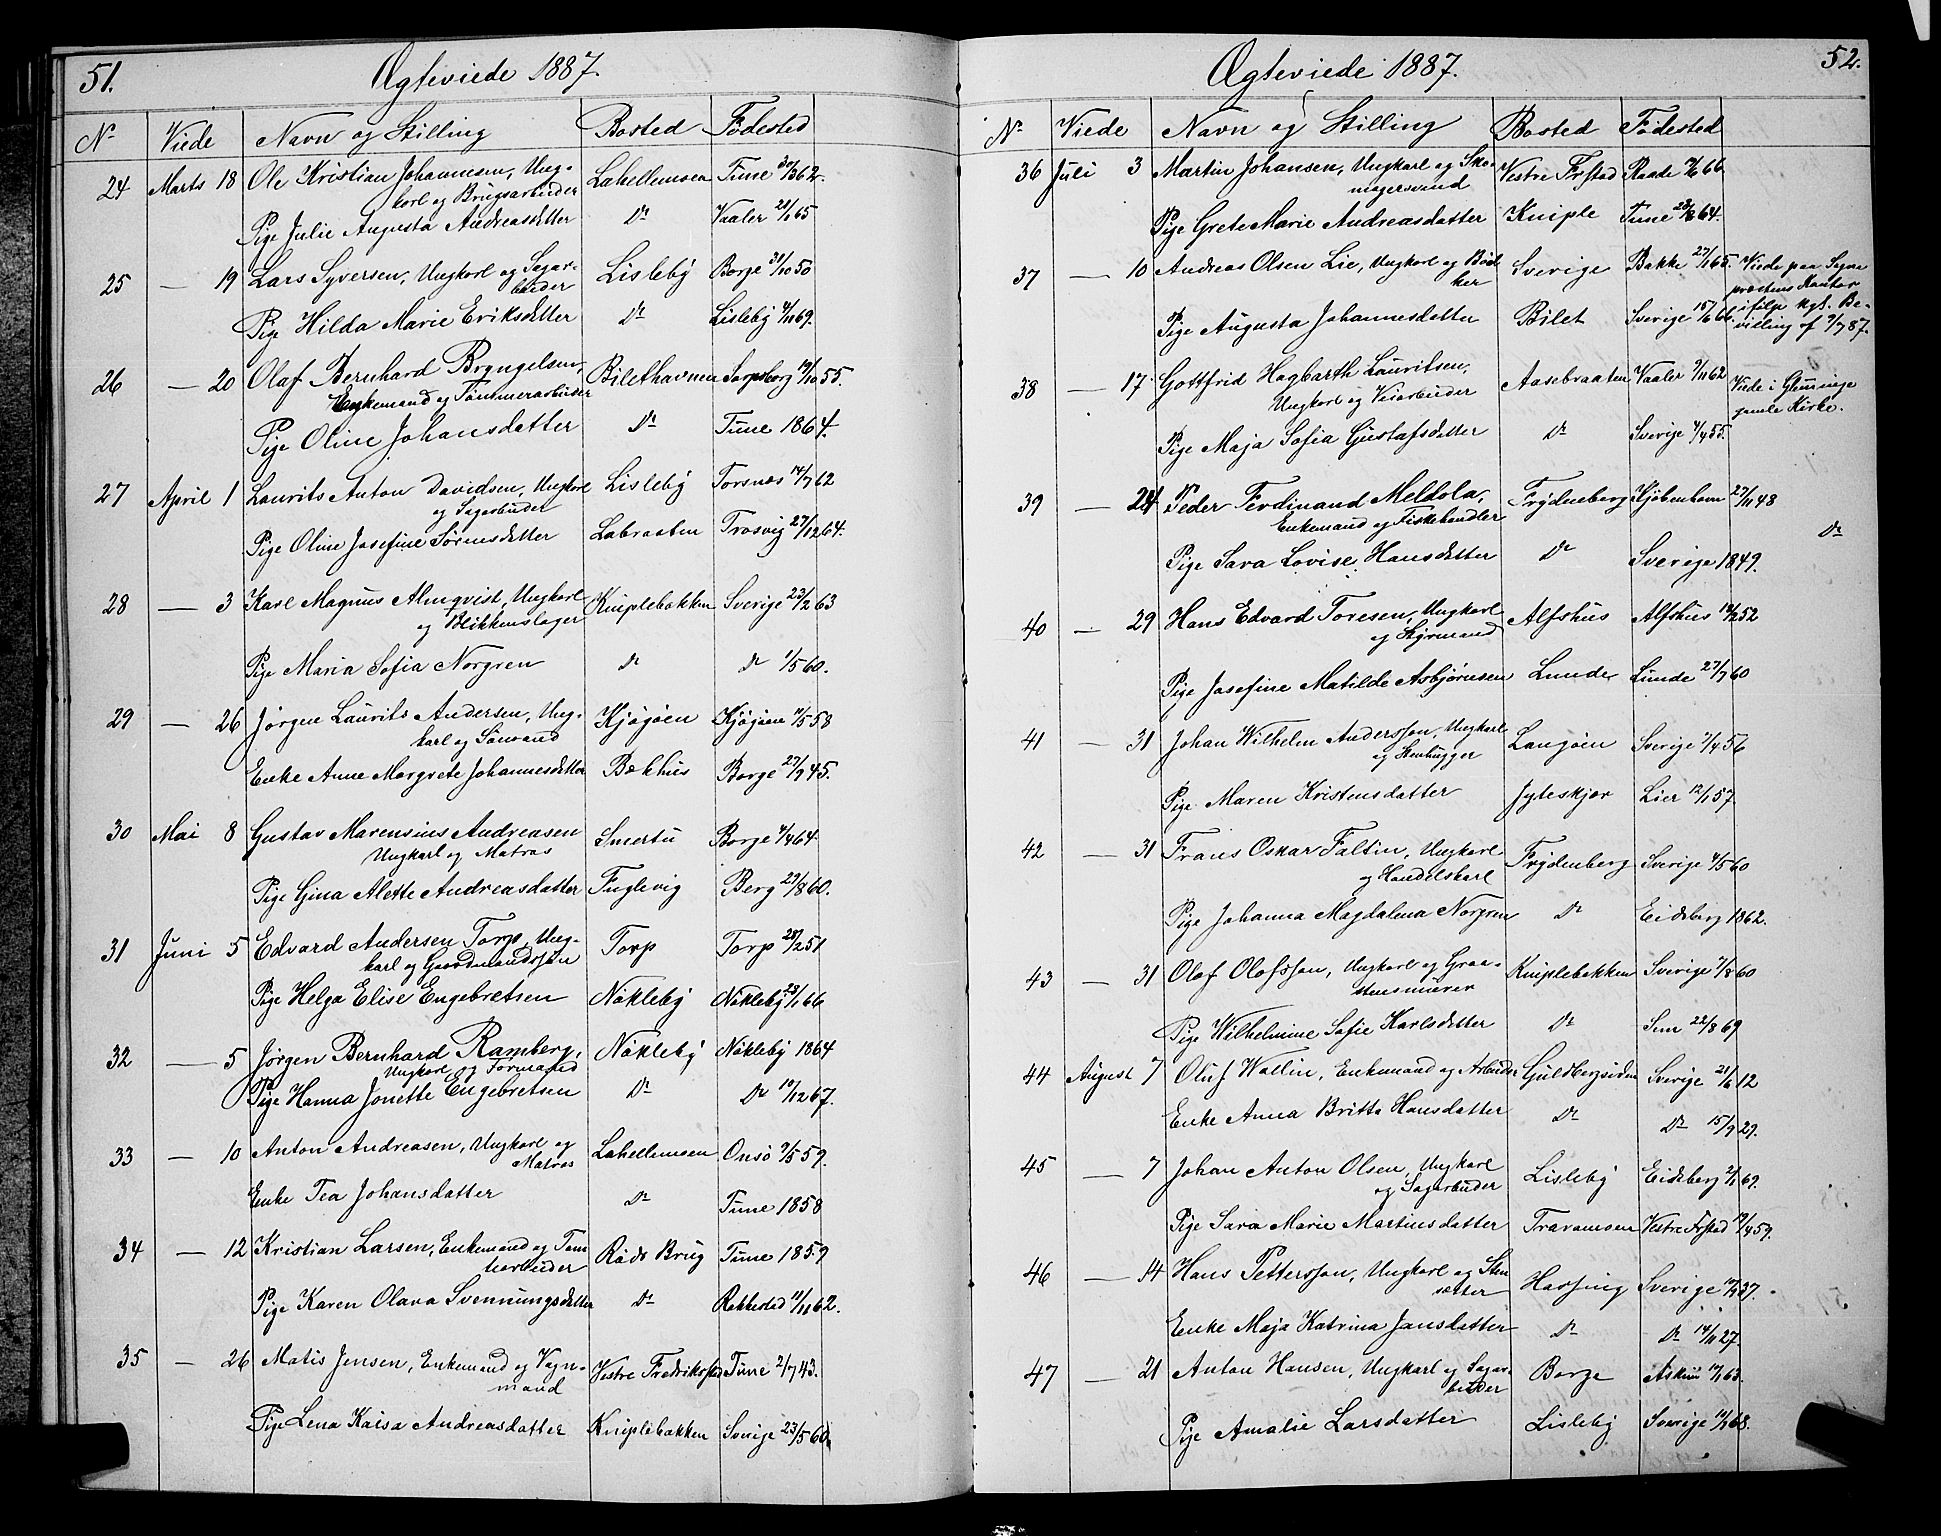 51.
Ægteviede 1887.
No Viede Navn og Stilling Bosted Fødested
24 Marts 18 Ole Kristian Johannesen, Ung- Lahellemoen Tune 30/3 62.
karl og Brugsarbeider
Pige Julie Augusta Andreasdatter Do Vaaler 21/1 65
25 — 19 Lars Syversen, Ungkarl og Sagar- Lisleby Borge 31/10 50
beider
Pige Hilda Marie Eriksdatter Do Lisleby 4/11 69.
26 — 20 Olaf Bernhard Bryngelsen, Bilethavnen Sarpsborg 19/10 55.
Enkemand og Tømmerarbeider
Pige Oline Johansdatter Do Tune 1864.
27 April 1 Laurits Anton Davidsen, Ungkarl Lisleby Torsnæs 14/7 62
og Sagarbeider
Pige Oline Josefine Sørensdatter Labraaten Trosvig 27/12 64.
28 — 3 Karl Magnus Almqvist, Ungkarl Kniplebakken Sverige 23/2 63
og Blikkenslager
Pige Maria Sofia Norgren Do Do 1/5 60.
29 — 26 Jørgen Laurits Andersen, Ung- Kjøgøen Kjøgøen 11/5 58
karl og Sømand
Enke Anne Margrete Johannesdatter Bækhus Borge 27/9 45.
30 Mai 8 Gustav Marensius Andreasen Smertu Borge 4/4 64.
Ungkarl og Matros
Pige Gina Alette Andreasdatter Fuglevig Berg 29/8 60.
31 Juni 5 Edvard Andersen Torp, Ung- Torp Torp 28/2 51
karl og Gaardmandssøn
Pige Helga Elise Engebretsen Nøkleby Nøkleby 23/1 66
32 — 5 Jørgen Bernhard Ramberg, Nøkleby Nøkleby 1864
Ungkarl og Formand
Pige Hanna Jonette Engebretsen Do Do 19/12 67.
33 — 10 Anton Andreasen, Ungkarl og Lahellemoen Onsø 9/5 59.
Matros
Enke Tea Johansdatter Do Tune 1858
34 — 12 Kristian Larsen, Enkemand og Tøm- Røds Brug Tune 1859
merarbeider
Pige Karen Olava Svennungsdatter Do Rakkestad 11/11 62.
35 — 26 Matis Jensen, Enkemand og Vogn- Vestre Fredrikstad Tune 2/7 43.
mand
Pige Lena Kaisa Andreasdatter Kniplebakken Sverige 23/5 60.
52.
Ægteviede 1887.
No Viede Navn og Stilling Bosted Fødested
36 Juli 3 Martin Johansen, Ungkarl og Sko- Vestre Frstad Raade 66
magersvend
Pige Grete Marie Andreasdatter Kniple Tune 23/8 64.
37 — 10 Andreas Olsen Lie, Ungkarl og Bød- Sverige Bakke 27/1 65. Viede paa Sogne
ker præstens Kontor
ifølge kgl. Be-
Pige Augusta Johannesdatter Bilet Sverige 15/6 66. villing af 9/7 87.
38 — 17 Gottfrid Hagbarth Lauritsen, Aasebraaten Vaaler 9/11 62 Viede i Glemminge
Ungkarl og Veiarbeider gamle Kirke.
Pige Maja Sofia Gustafsdatter Do Sverige 4/4 55.
39 — 24 Peder Ferdinand Meldola, Frydenberg Kjøbenhavn 27/11 48
Enkemand og Fiskehandler Do
Pige Sara Lovise Hansdatter Do Sverige 1849.
40 — 29 Hans Edvard Toresen, Ungkarl Alfshus Alfshus 14/2 52
og Styrmand
Pige Josefine Matilde Asbjørnsen Lunde Lunde 27/7 60
41 — 31 Johan Wilhelm Andersson, Ungkarl Langøen Sverige 7/4 56
og Stenhugger
Pige Maren Kristensdatter Jyteskjær Lier 12/1 57.
42 — 31 Frans Oskar Faltin, Ungkarl Frydenberg Sverige 4/5 60
og Handelskarl
Pige Johanna Magdalena Norgren Do Eidsberg 1862.
43 — 31 Olof Olofsson, Ungkarl og Graa- Kniplebakken Sverige 7/8 60
stensmurer
Pige Wilhelmine Sofie Karlsdatter Do Sem 22/8 69
44 August 7 Oluf Wallin, Enkemand og Arbeider Guldbergsiden Sverige 21/6 12
Enke Anna Britta Hansdatter Do Do 15/9 29.
45 — 7 Johan Anton Olsen, Ungkarl Lisleby Eidsberg 2/1 69.
og Sagarbeider
Pige Sara Marie Martinsdatter Traramoen Vestre Frstad 19/4 59.
46 — 14 Hans Pettersson, Ungkarl og Sten- Hassing Sverige 37.
sætter
Enke Maja Katrina Jansdatter Do Do 14/11 27.
47 — 21 Anton Hansen, Ungkarl og Sagar- Borge Askim 63.
beider
Pige Amalie Larsdatter Lisleby Sverige 68.